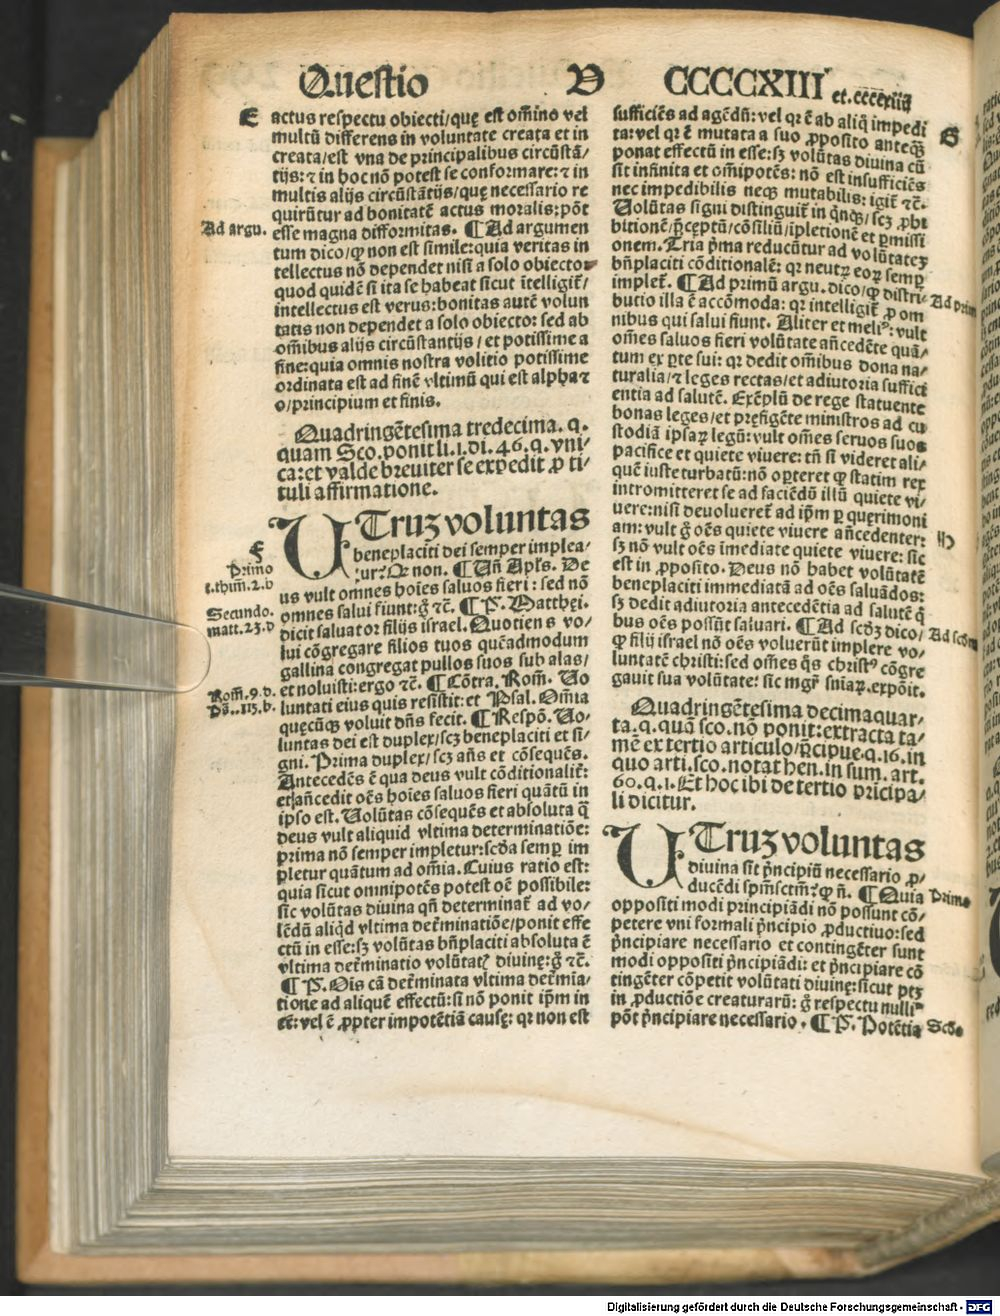 Questio V CCCCXIII et.ccccxiiij
E actus respectu obiecti/quę est om̃ino vel
multũ differens in voluntate creata et in
creata/est vna de principalibus circũstã/
tijs: ⁊ in hoc nõ potest se conformare: ⁊ in
multis alijs circũstãtijs/quę necessario re
quirũtur ad bonitatẽ actus moralis: põt
Ad argu. esse magna difformitas. ¶ Ad argumen
tum dico/ꝙ non est simile: quia veritas in
tellectus nõ dependet nisi a solo obiecto
quod quidẽ si ita se habeat sicut ĩtelligit᷑/
intellectus est verus: bonitas autẽ volun
tatis non dependet a solo obiecto: sed ab
om̃ibus alijs circũstantijs/et potissime a
fine: quia omnis nostra volitio potissime
ordinata est ad finẽ vltimũ qui est alpha ⁊
o/principium et finis.
Quadringẽtesima tredecima. q.
quam Sco. ponit li. 1. di. 46. q. vni/
ca: et valde breuiter se expedit ꝓ ti/
tuli affirmatione.
UTruꝫ voluntas
F beneplaciti dei semper implea/
Primo tur? Qꝛ non. ¶ Uñ Apl̃s. De
1.thim.2.b us vult omnes hoĩes saluos fieri: sed nõ
Secundo. omnes salui fiunt: ḡ ⁊c̃. ¶ P̃. Matthęi.
matt.23.d dicit saluator filijs israel. Quotiens vo/
lui cõgregare filios tuos quẽadmodum
gallina congregat pullos suos sub alas/
Rom̃.9.d. et noluisti: ergo ⁊c̃. ¶ Cõtra. Rom̃. Uo
Ps̃.113.b. luntati eius quis resistit: et Psal. Om̃ia
quęcũqꝫ voluit dñs fecit. ¶ Respõ. Uo/
luntas dei est duplex/scꝫ beneplaciti et si/
gni. Prima duplex/scꝫ añs et cõsequẽs.
Antecedẽs ẽ qua deus vult cõditionalit᷑:
et añcedit oẽs hoĩes saluos fieri quãtũ in
ipso est. Uolũtas cõsequẽs et absoluta q̃
deus vult aliquid vltima determinatiõe:
prima nõ semper impletur: scd̃a semꝑ im
pletur quãtum ad om̃ia. Cuius ratio est:
quia sicut omnipotẽs potest oẽ possibile:
sic volũtas diuina qñ determinat᷑ ad vo/
lẽdũ aliqd̃ vltima det̃minatiõe/ponit effe
ctũ in esse: sꝫ volũtas bñplaciti absoluta ẽ
vltima det̃minatio volũtatꝭ diuinę: ḡ ⁊c̃.
¶ P̃. Ois cã det̃minata vltima det̃mia/
tione ad aliquẽ effectũ: si nõ ponit ip̃m in
eẽ: vel ẽ ꝓpter impotẽtiã causę: qꝛ non est
sufficiẽs ad agẽdũ: vel qꝛ ẽ ab aliq̃ impedi
G ta: vel qꝛ ẽ mutata a suo ꝓposito anteq̃ꝫ
ponat effectũ in esse: sꝫ volũtas diuina cũ
sit infinita et om̃ipotẽs: nõ est insufficiẽs
nec impedibilis neqꝫ mutabilis: igit᷑ ⁊c̃.
Uolũtas signi distinguit᷑ in q̃nqꝫ/scꝫ ꝓhi
bitionẽ/p̃ceptũ/cõsiliũ/ĩpletionẽ et ꝑmissi
onem. Tria p̃ma reducũtur ad volũtateꝫ
bñplaciti cõditionalẽ: qꝛ neutꝝ eoꝝ semꝑ
implet᷑. ¶ Ad primũ argu. dico/ꝙ distri/ Ad prim
butio illa ẽ accõmoda: qꝛ intelligit᷑ ꝓ om
nibus qui salui fiunt. Aliter et meliꝰ: vult
om̃es saluos fieri volũtate añcedẽte quã/
tum ex ꝑte sui: qꝛ dedit om̃ibus dona na/
turalia/⁊ leges rectas/et adiutoria suffici
entia ad salutẽ. Exẽplũ de rege statuente
bonas leges/et pręfigẽte ministros ad cu
stodiã ipsaꝝ legũ: vult om̃es seruos suos
pacifice et quiete viuere: tñ si videret ali/
quẽ iuste turbatũ: nõ oꝑteret ꝙ statim rex
intromitteret se ad faciẽdũ illũ quiete vi/
uere: nisi deuolueret᷑ ad ip̃m ꝑ querimoni
am: vult ḡ oẽs quiete viuere añcedenter: H
sꝫ nõ vult oẽs ĩmediate quiete viuere: sic
est in ꝓposito. Deus nõ habet volũtatẽ
beneplaciti immediatã ad oẽs saluãdos:
sꝫ dedit adiutoria antecedẽtia ad salutẽ q̃
bus oẽs possũt saluari. ¶ Ad scd̃ꝫ dico/ Ad scd̃m
ꝙ filij israel nõ oẽs voluerũt implere vo/
luntatẽ christi: sed om̃es q̃s christꝰ cõgre
gauit sua volũtate: sic mgr̃ sniaꝝ. expõit.
Quadringẽtesima decimaquar/
ta. q. quã sco. nõ ponit: extracta ta/
mẽ ex tertio articulo/p̃cipue. q. 16. in
quo arti. sco. notat hen. in sum. art.
60. q. 1. Et hoc ibi de tertio p̃ricipa/
li dicitur.
UTruꝫ voluntas
diuina sit p̃ncipiũ necessario ꝓ/
ducẽdi sp̃m sctm̃? ꝙ ñ. ¶ Quia Primo
oppositi modi principiãdi nõ possunt cõ/
petere vni formali p̃ncipio ꝓductiuo: sed
p̃ncipiare necessario et contingẽter sunt
modi oppositi p̃ncipiãdi: et p̃ncipiare cõ
tingẽter cõpetit volũtati diuinę: sicut ptꝫ
in ꝓductiõe creaturarũ: ḡ respectu nulliꝰ
põt p̃ncipiare necessario. ¶ P̃. Potẽtia Scd̃o
Digitalisierung gefördert durch die Deutsche Forschungsgemeinschaft - DFG